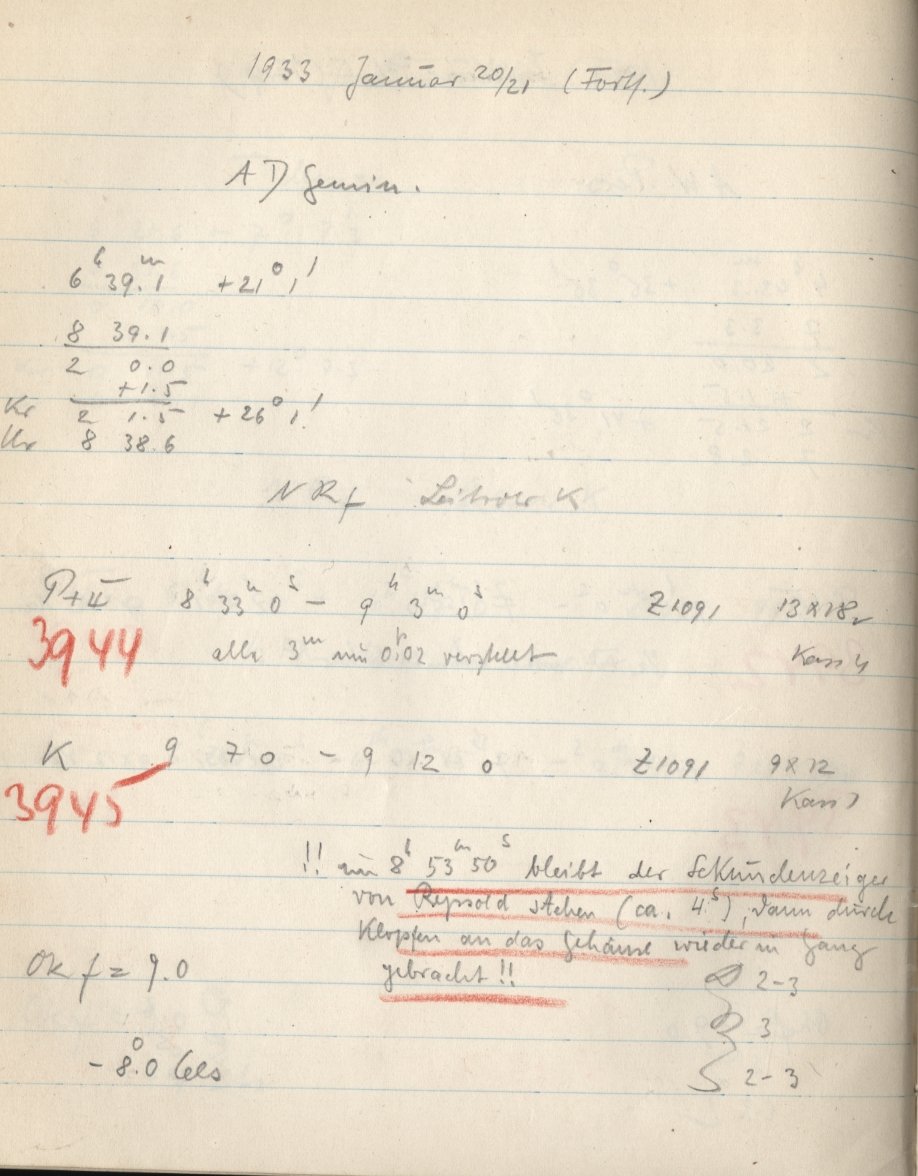 1933 Januar 20/21 (Forts.)
AD Gemin.
6h 39.m1 +21° 1'
8 39.1
2 0.0
+1.5
Kr 2 1.5 +26° 1'
Uhr 8 38.6
NRf Leitrohr K
8h 33m 0s – 9h 3m 0s Z1091 13x18
3944 alle 3m um 0.02 verstellt Kass 4
K 9 7 0 – 9 12 0 Z1091 9x12
3945 Kass
!! um 8h 53m 50s bleibt der Sekundenzeiger
von Repsold stehen (ca. 4s), dann durch
Klopfen an das Gehäuse wieder in Gang
Ok f = 9.0 gebracht!!
2-3
3
-8.°0 Cels
2-3